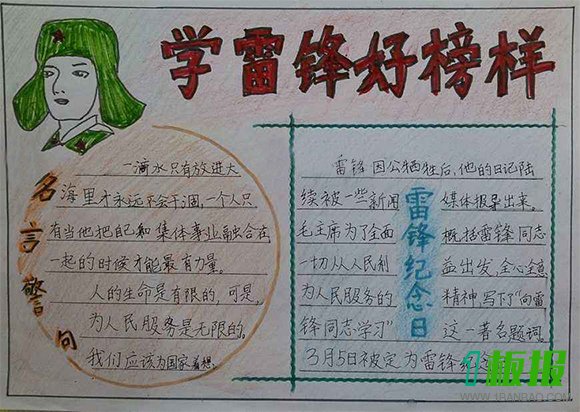 学雷锋好榜样
名言警句
一滴水只有放进大
海里才永远不会干涸,一个人只
有当他把自己和集体事业融合在
一起的时候才能最有力量。
人的生命是有限的,可是,
为人民服务是无限的。
我们应该为国家着想。
雷锋纪念日
雷锋因公牺牲后,他的日记陆
续被一些新闻媒体报导出来。
毛主席为了全面概括雷锋同志
一切从人民利益出发,全心全意
为人民服务的精神,写下了“向雷
锋同志学习”这一著名题词。
3月5日被定为雷锋纪
板报
WWW.1BANBAO.COM